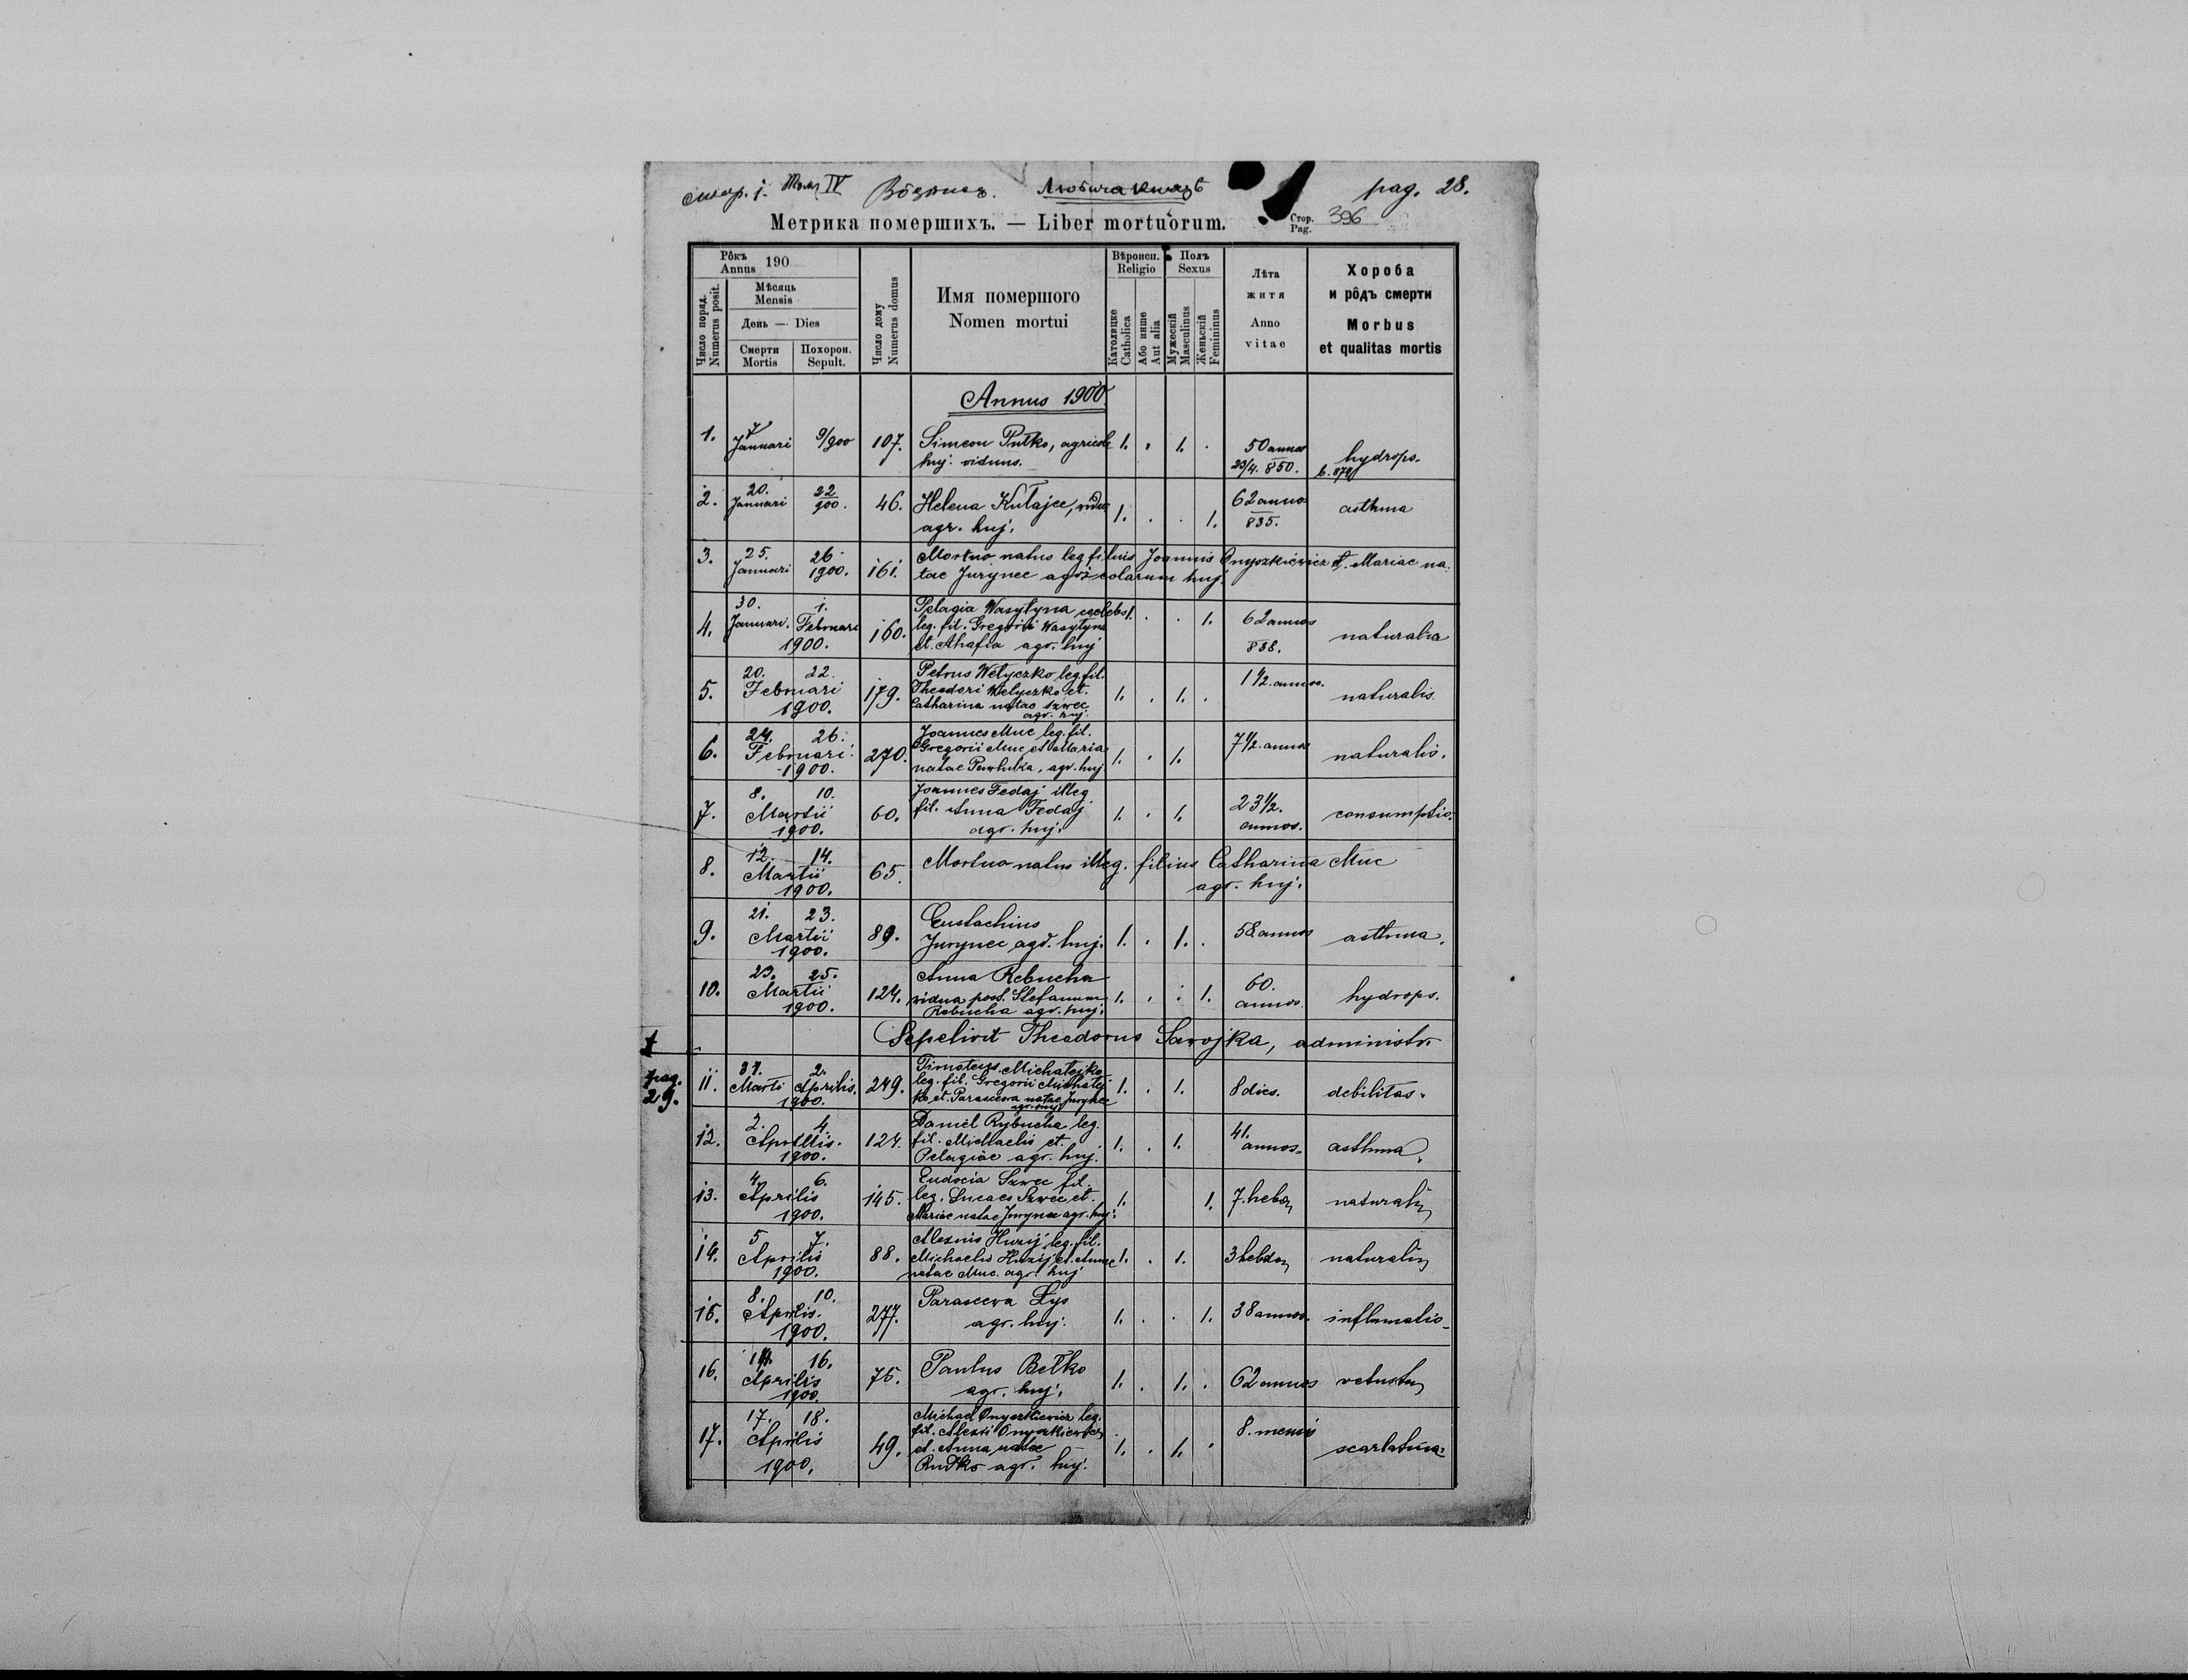 стор. j. Том IV Любича князѣ pag. 28.
Метрика помершихъ. — Liber mortuorum. Стор. Pag. 396
Рôкъ Annus 190
Число поряд. Numerus posit.
Мѣсяць Mensis
День — Dies
Смерти Mortis
Похорон. Sepult.
Число дому Numerus domus
Имя помершого
Nomen mortui
Вѣроисп. Religio
Католицке Catholica
Або инше Aut alia
Полъ Sexus
Мужескій Masculinus
Женьскій Femininus
Лѣта житя
Anno vitae
Хороба и рôдъ смерти
Morbus et qualitas mortis
Annus 1900.
1. 7 Januari 9/900 107. Simeon Putko, agricola 1. . 1. . 50 annos
huj. viduus. 23/4. 850. hydrops.
2. 20. Januari 22/900. 46. Helena Kułajec, vidua 1. . . 1. 62 annos asthma
agr. huj. 835.
3. 25. Januari 26 1900. 161. Mortuo natus leg filius Joannis Onyszkiewicz et. Mariae na-
tae Jurynec agricolarum huj.
4. 30. Januari. 1. Februari 1900. 160. Pelagia Wasyłyna caelebs 1. . . 1. 62 annos
leg. fil. Gregorii Wasyłyna
et. Ahafia agr. huj 838. naturalia
5. 20. 22. Februari 1900. 179. Petrus Wełyczko leg. fil.
Theodori Wełyczko et. 1. . 1. . 1 1/2. annos. naturalis.
Catharina natae Szwec
agr. huj.
6. 24. 26. Februari 1900. 270. Joannes Muc leg. fil.
Gregorii Muc et Maria 1. . 1. 7 1/2. annos naturalis.
natae Pawluka, agr. huj
7. 8. 10. Martii 1900. 60. Joannes Fedaj illeg
fil. Anna Fedaj 1. . 1. 23 1/2. annos. consumptio.
agr. huj.
8. 12. 14. Martii 1900. 65. Mortuo natus illeg. filius Catharina Muc
agr. huj.
9. 21. 23. Martii 1900. 89. Eustachius
Jurynec agr. huj. 1. . 1. . 58 annos asthma.
10. 23. 25. Martii 1900. 124. Anna Rebucha
vidua post. Stefanum 1. . . 1. 60. annos. hydrops.
Rebucha agr. huj.
Sepelivit Theodorus Sawojka, administr.
pag. 29.
11. 31. Marti 2. Aprilis. 1900. 249. Timoteus Michałejko
leg. fil. Gregorii Michałej 1. . 1. 8 dies. debilitas.
ko et. Parascewa natae Jurynec
agr. huj
12. 2. 4. Aprillis. 1900. 124. Daniel Rybucha leg.
fil. Michaelis et. 1. . 1. 41. annos. asthma.
Pelagiae agr. huj.
13. 4. 6. Aprilis 1900. 145. Eudocia Szwec fil.
leg. Lucaes Szwec et. 1. 1. 7. hebd naturalis
Mariae natae Jurynec agr. huj.
14. 5 7. Aprilis 1900. 88. Alexius Huzij leg. fil.
Michaelis Huzij et. Annae 1. . 1. 3 hebdo naturalis
natae Muc. agr. huj
15. 8. 10. Aprilis. 1900. 277. Parascewa Lys
agr. huj. 1. . . 1. 38 annos. inflamatio
16. 14. 16. Aprilis 1900. 75. Paulus Bełko
agr. huj. 1. . 1. . 62 annos vetustas
17. 17. 18. Aprilis 1900. 49. Michael Onyszkiewicz leg.
fil. Alexii Onyszkiewicz
et. Anna natae 1. . 1. . 8. mensis scarlatina
Rudko agr. huj.